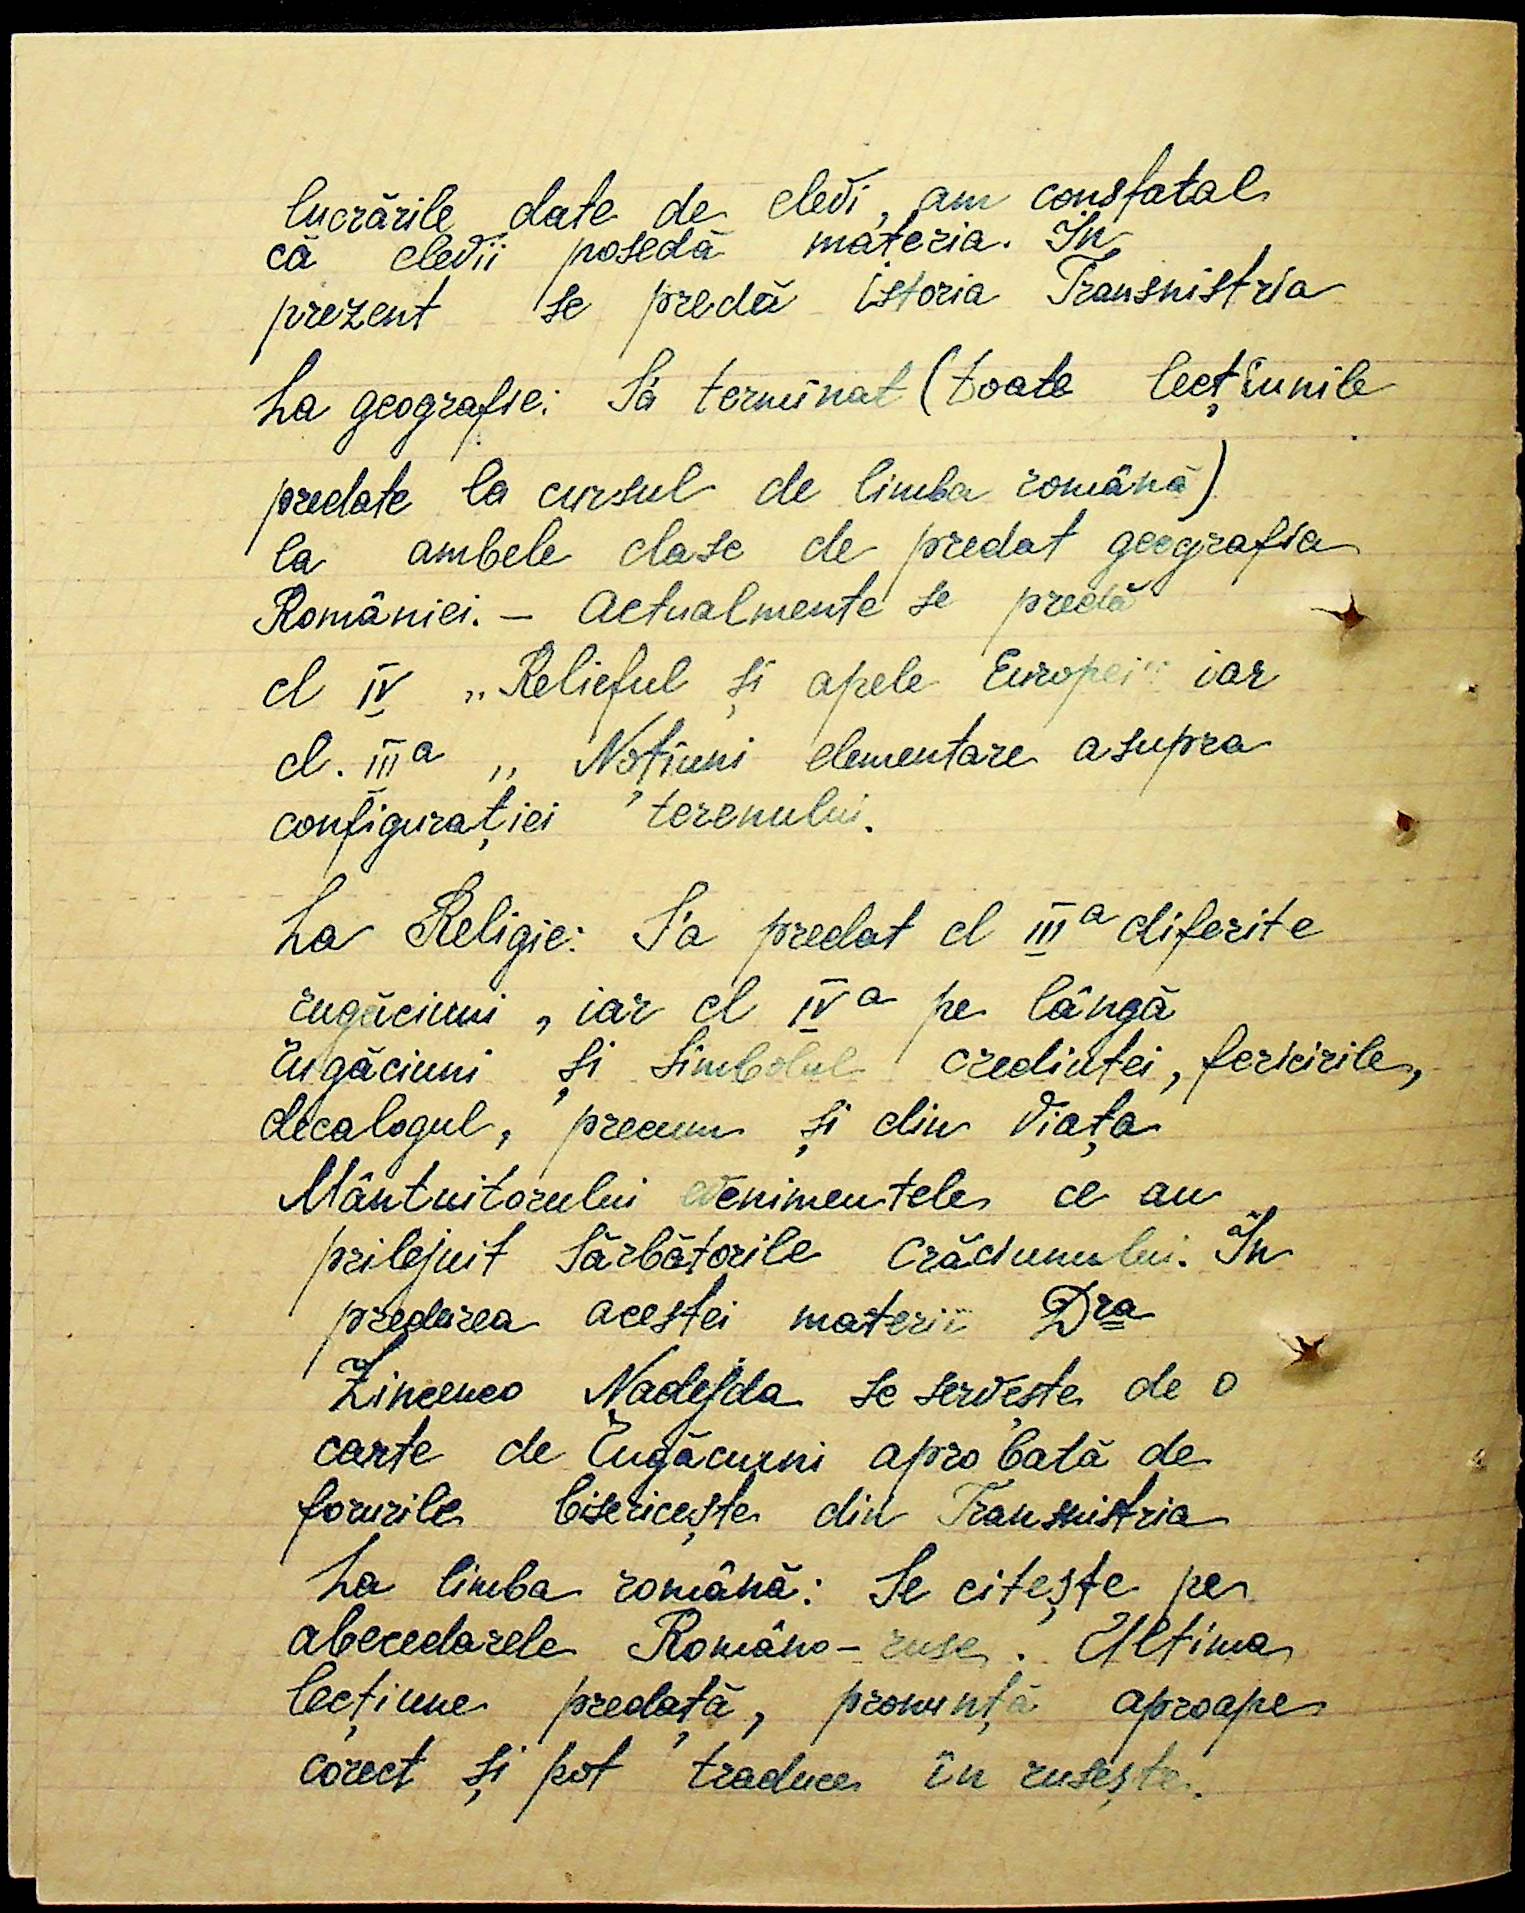 lucrările date de elevi, am constatat
că elevii posedă materia. În
prezent se predă istoria Transnistria
La geografie: S'a terminat (toate lecțiunile
predate la cursul de limba română)
la ambele clase de predat geografia
României. – Actualmente se predă
cl IV „Relieful și apele Europei" iar
cl. III a „ Noțiuni elementare asupra
configurației terenului.
La Religie: S'a predat cl III a diferite
rugăciuni, iar cl IV a pe lângă
rugăciuni și simbolul credintei, fericirile,
decalogul, precum și din Viața
Mântuitorului evenimentele ce au
prilejuit Sărbătorile Crăciunului. În
predarea acestei materii Dra
Zincenco Nadejda se servește de o
carte de rugăciuni aprobată de
forurile bisericește din Transnistria
La limba română: Se citește pe
abecedarele Româno-ruse. Ultima
lecțiune predață, pronunță aproape
corect și pot traduce în rusește.